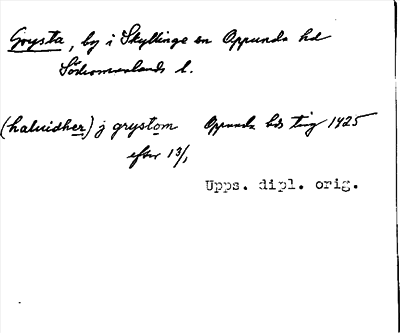 Grysta, by i Skyllinge sn Oppunda hd
Södermanlands l.
(haluidher) j grystom Oppunda hds ting 1425
efter 13/1
Upps. dipl. orig.